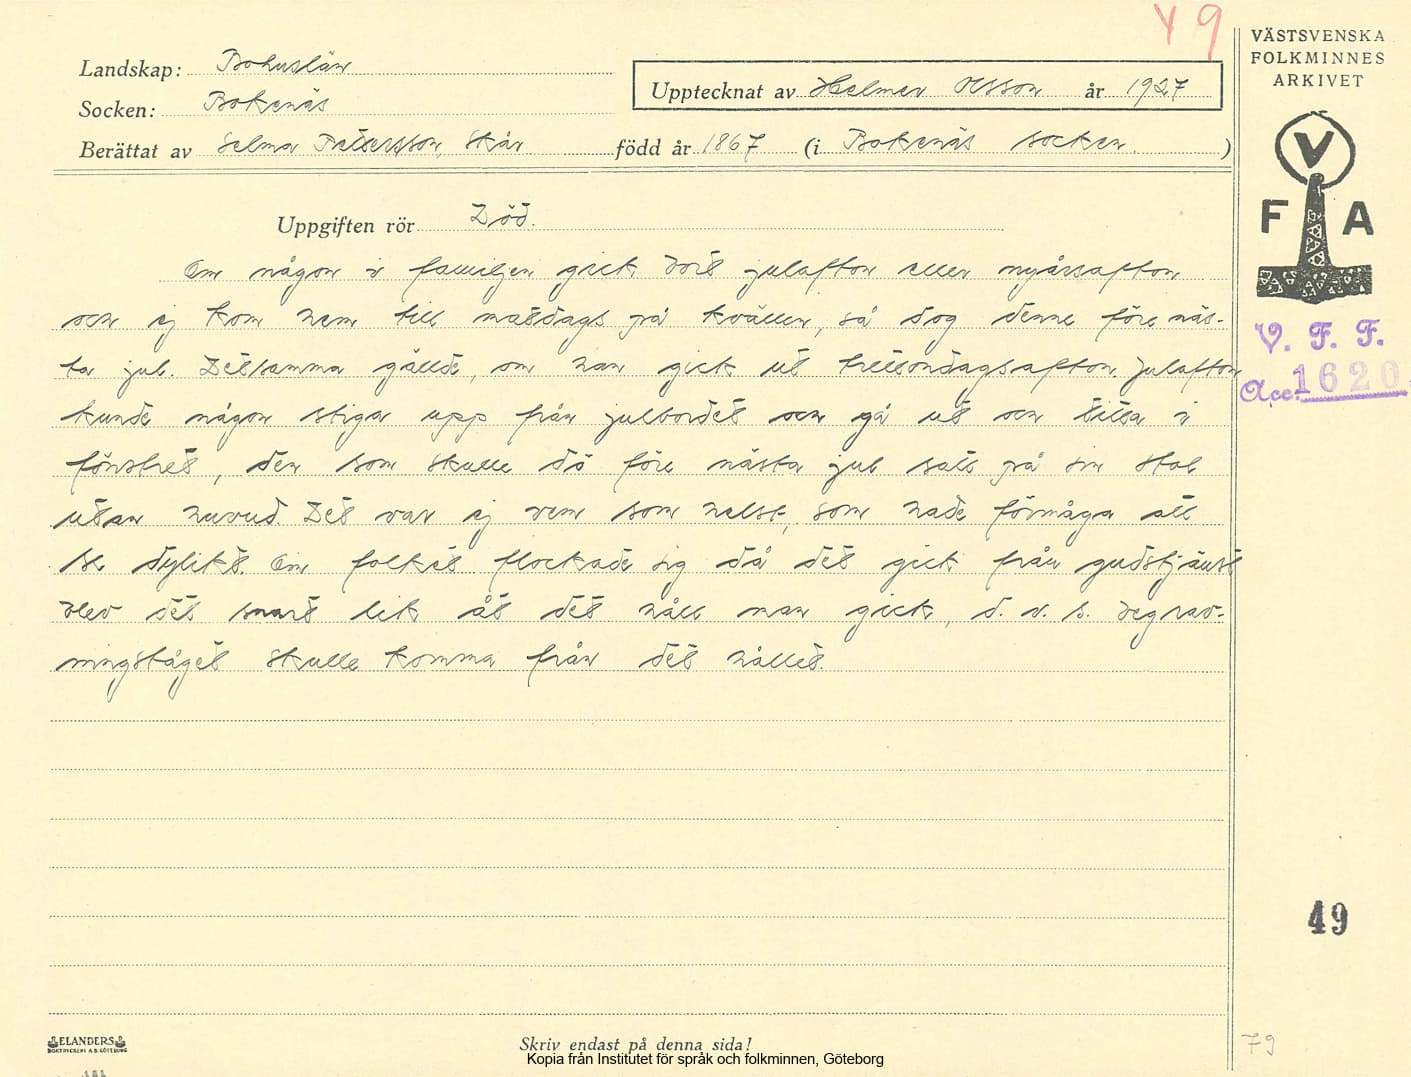 Y 9
VÄSTSVENSKA
FOLKMINNES
ARKIVET
Landskap: Bohuslän
Socken: Bokenäs
Upptecknat av Helmer Olsson år 1927
Berättat av Selma Pettersson, Skår född år 1867 (i Bokenäs socken.)
V
F A
Uppgiften rör Död.
Om någon i familjen gick bort julafton eller nyårsafton
och ej kom hem till matdags på kvällen, så dog denne före näs-
ta jul. Detsamma gällde, om han gick ut trettondagsafton. Julafton
kunde någon stiga upp från julbordet och gå ut och titta i
fönstret, den som skulle dö före nästa jul satt på sin stol
utan huvud. Det var ej vem som helst, som hade förmåga att
se dylikt. Om folket flockade sig då det gick från gudstjänst
blev det snart lik åt det håll man gick, d. v. s. begrav-
ningståget skulle komma från det hållet.
V. F. F.
Acc. 1620
49
79
ELANDERS
BOKTRYCKERI A.B. GÖTEBORG
Skriv endast på denna sida!
Kopia från Institutet för språk och folkminnen, Göteborg